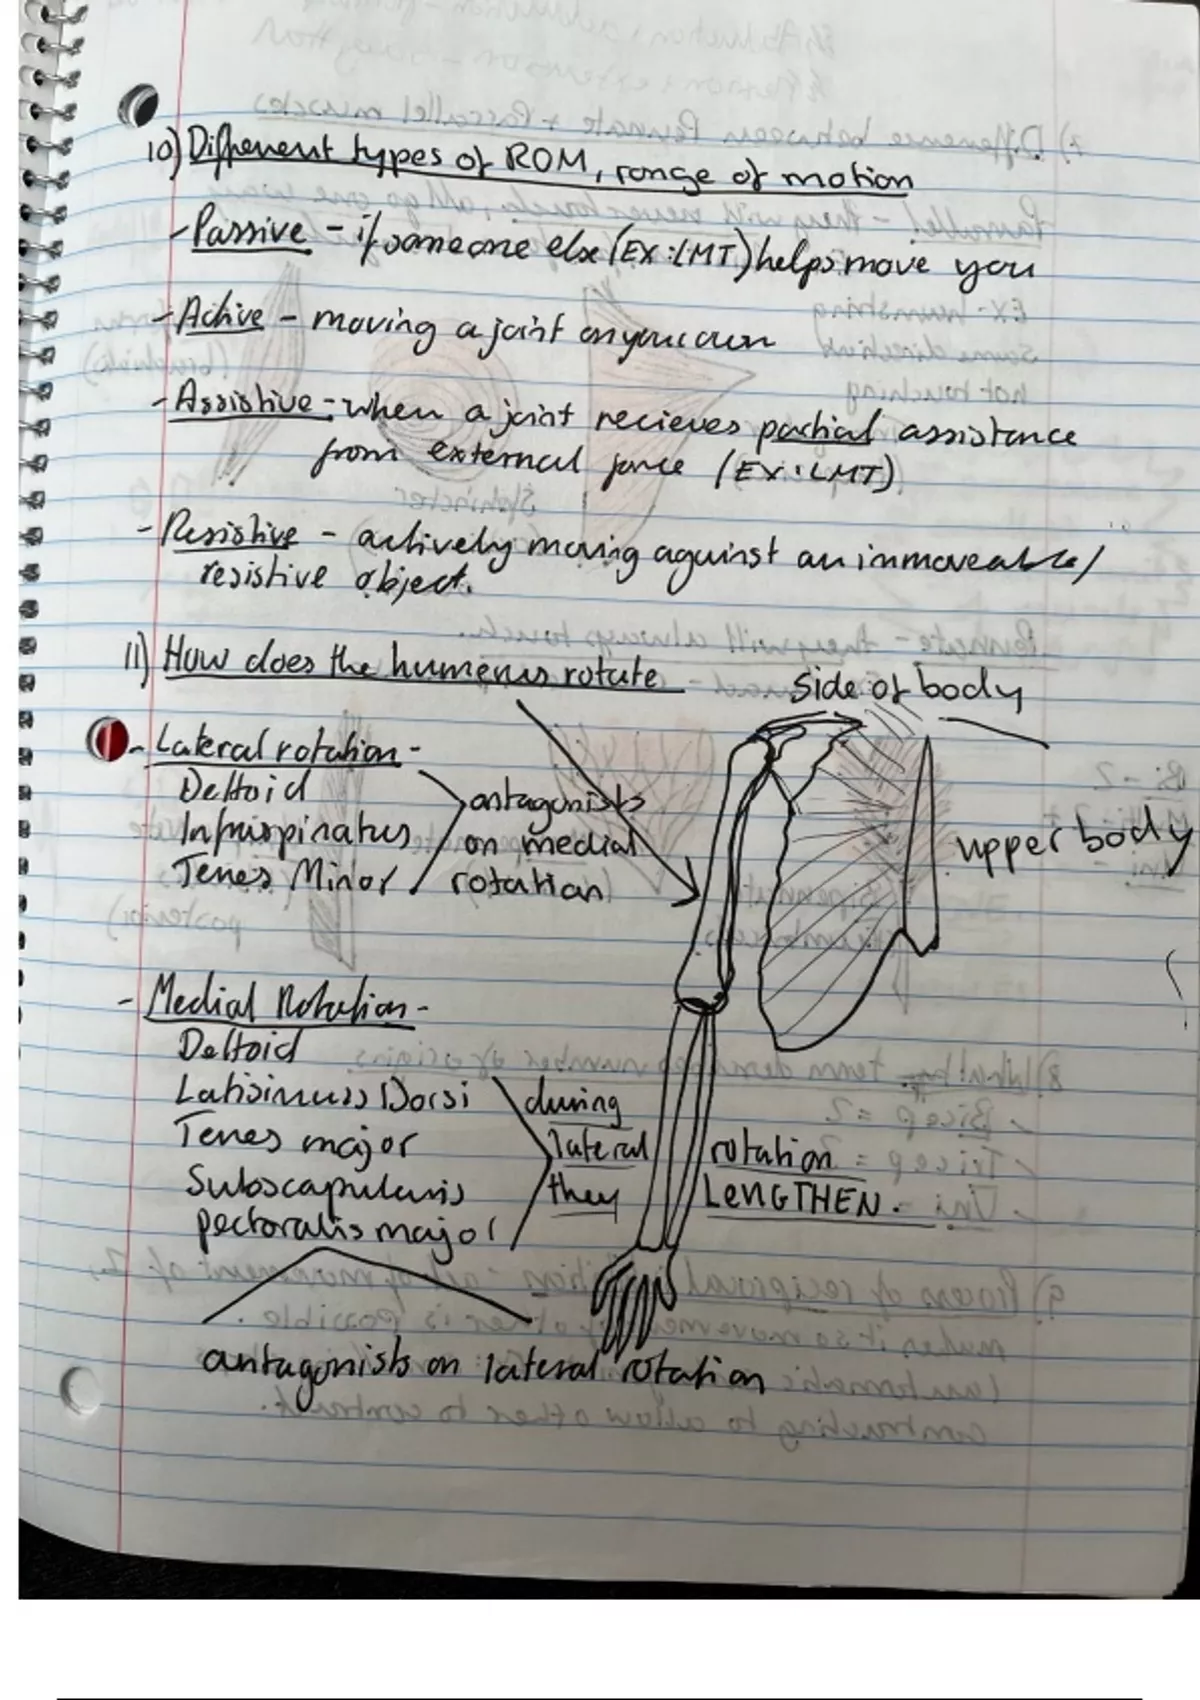 10) Different types of ROM, range of motion
- Passive - if someone else (EX: LMT) helps move you
- Active - moving a joint on your own
- Assistive - when a joint recieves partial assistance
from external force (EX: LMT)
- Resistive - actively moving against an immoveable/
resistive object.
11) How does the humerus rotate
side of body
- Lateral rotation -
Deltoid
Infraspinatus
Teres Minor
antagonists
on medial
rotation
upper body
- Medial Rotation -
Deltoid
Latisimuss Dorsi
Teres major
Subscapularis
pectoralis major
during
lateral rotation
they LENGTHEN.
antagonists on lateral rotation